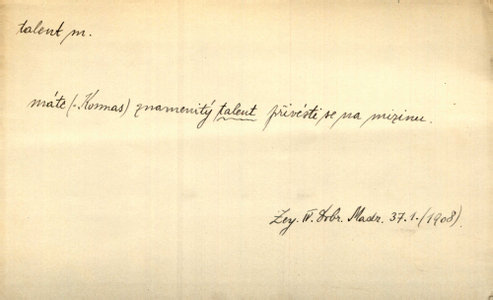 talent m.
máte (-Kosmas) znamenitý talent přivésti se na mizinu.
Zey. IV. Dobr. Madr. 37.1.(1908).